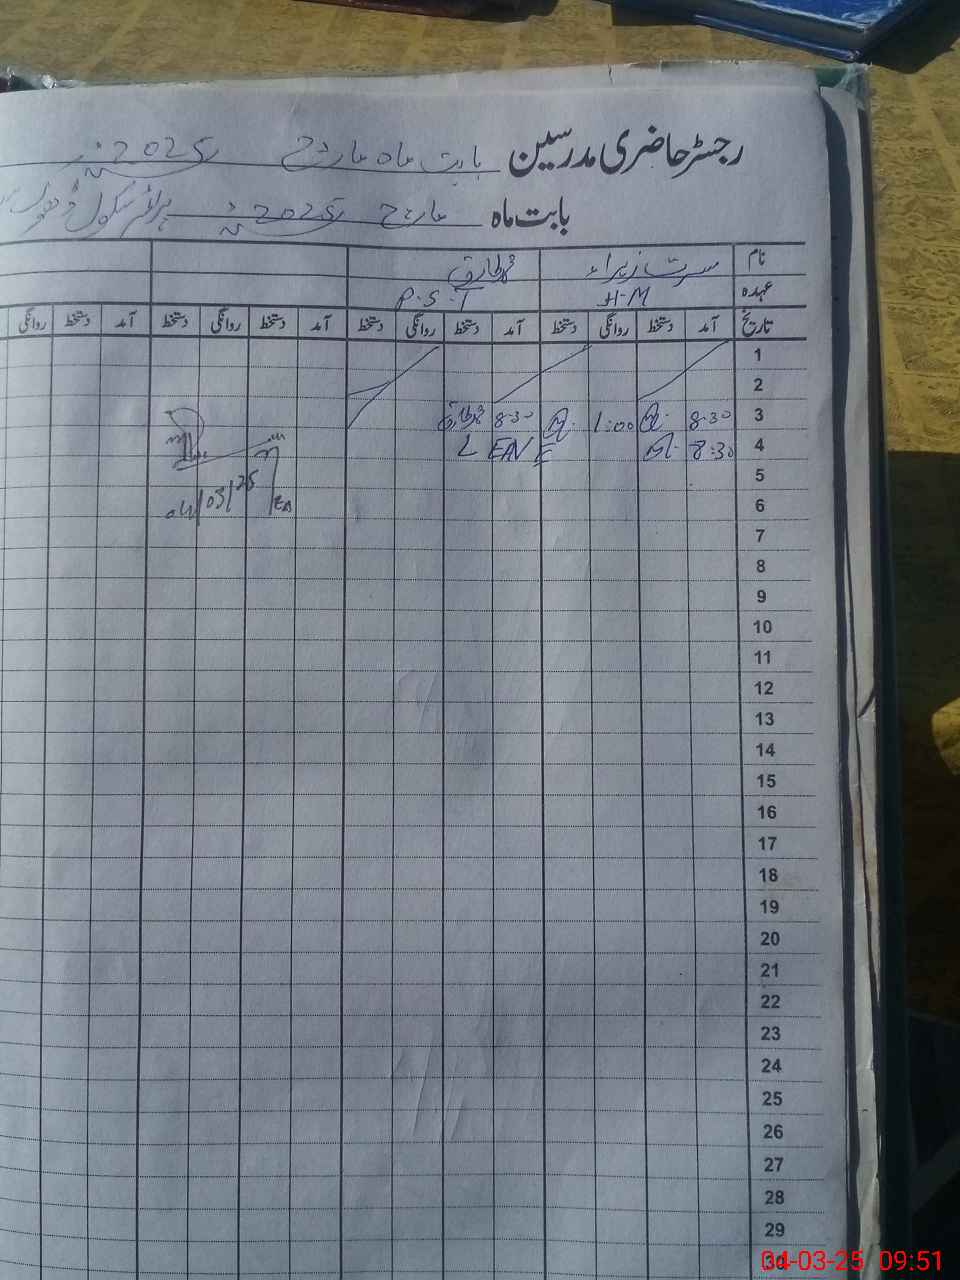 رجسٹر حاضری مدرسین بابت ماہ مارچ 2025ء
بابت ماہ مارچ 2025ء پرائمری سکول
نام مسرت زہراء محمد طارق
عہدہ H.M P.S.T
تاریخ آمد دستخط روانگی دستخط آمد دستخط روانگی دستخط آمد دستخط روانگی دستخط آمد دستخط روانگی
1
2
3 8:30 1:00 8:30 محمد طارق
4 8:30 LEAVE
5
6 04/03/25
7
8
9
10
11
12
13
14
15
16
17
18
19
20
21
22
23
24
25
26
27
28
29
30
04-03-25 09:51